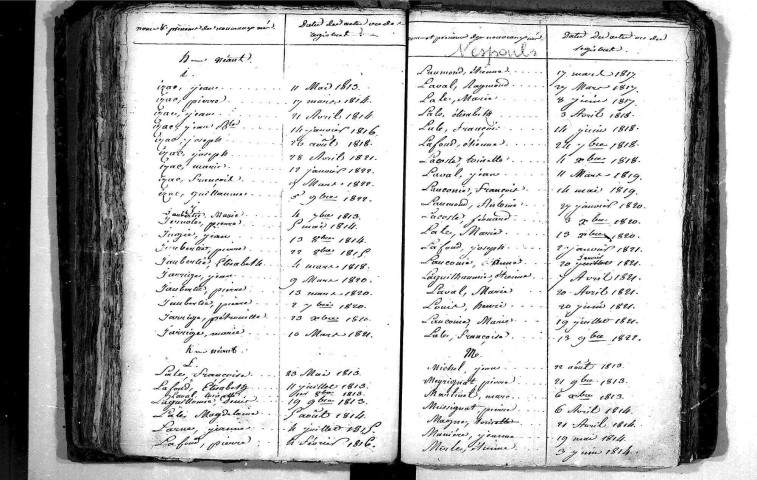 noms & prénoms des nouveaux nés
Dates des actes ou de
registrat
h— néant.
i.
izac, jean 11 Mai 1813.
izac, pierre 17 mars 1814.
izac, jean 21 Avril 1814.
izac, jean Bte 14 janvier 1816.
izac, joseph 20 août 1818.
izac, joseph 28 Avril 1821.
izac, marie 12 janvier 1822.
izac, françois Mars 1822.
izac, guillaume 5 9bre 1822.
j
Jaubertie, Marie 4 7bre 1813.
pierre 5 mai 1814.
jean 13 8bre 1814.
Jaubertie, pierre 22 8bre 1815
Jaubertie, Elisabeth 4 mars 1818.
Jarrige, jean 9 Mars 1820.
Jaubertie, pierre 13 mars 1820.
Jaubertie, pierre 2 7bre 1820.
Jarrige, pétronille 23 xbre 1820.
Jarrige, marie 10 Mars 1821.
K— néant.
L
Lale, Françoise 23 Mai 1813.
Lafond, Elisabeth 11 juillet 1813.
Laval, 8bre 1813.
Laguillaumie, Denis 19 9bre 1813.
Lale, Magdelaine 5 août 1814.
jeanne 4 juillet 1815
Lafond, pierre 6 Février 1816.
noms et prénoms des nouveaux nés
Dates des actes ou de
registrat.
Nespouls
Laumond, Etienne 17 mars 1817.
Laval, Raymond 27 Mars 1817.
Lale, Marie 8 juin 1817.
Lale, Elisabeth 3 Avril 1818.
Lale, François 14 juin 1818.
Lafond, Etienne 24 7bre 1818.
Lacoste, toinette 4 xbre 1818.
Laval, jean 11 Mars 1819.
Lauconie, François 14 mai 1819.
Laumond, Antoine 27 janvier 1820.
Lacoste, bernard 3 xbre 1820.
Lale, Marie 13 xbre 1820.
Lafond, joseph 2 janvier 1821.
Lauconie, Anne 20 janvier 1821.
Laguilhaumie, Etienne 7 Avril 1821.
Laval, Marie 20 Avril 1821.
Louis, Henri 20 juin 1821.
Lauconie, Marie 19 juillet 1821.
Lale, Françoise 13 9bre 1822.
M.
Michel, jean 22 août 1813.
Meyrignat, pierre 21 9bre 1813.
Martinet, marc 6 xbre 1813.
Meissignat, pierre 6 Avril 1814.
Magne, toinette 21 Avril 1814.
Manière, jeanne 19 mai 1814.
Etienne 3 juin 1814.